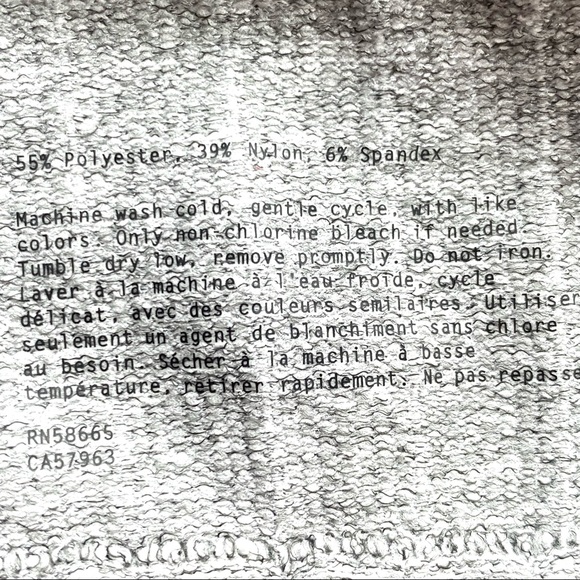 55% Polyester, 39% Nylon, 6% Spandex
Machine wash cold, gentle cycle, with like
colors. Only non-chlorine bleach if needed.
Tumble dry low, remove promptly. Do not iron.
Laver à la machine à l'eau froide, cycle
délicat, avec des couleurs semilaires. Utiliser
seulement un agent de blanchiment sans chlore
au besoin. Sécher à la machine à basse
température, retirer rapidement. Ne pas repasse
RN58665
CA57963